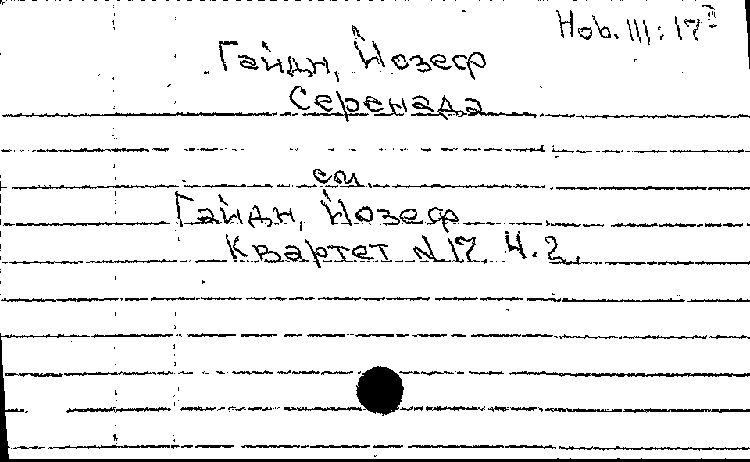 Hob. III: 17 II
Гайдн, Йозеф
Серенада
см.
Гайдн, Йозеф
Квартет N 17. Ч. 2.